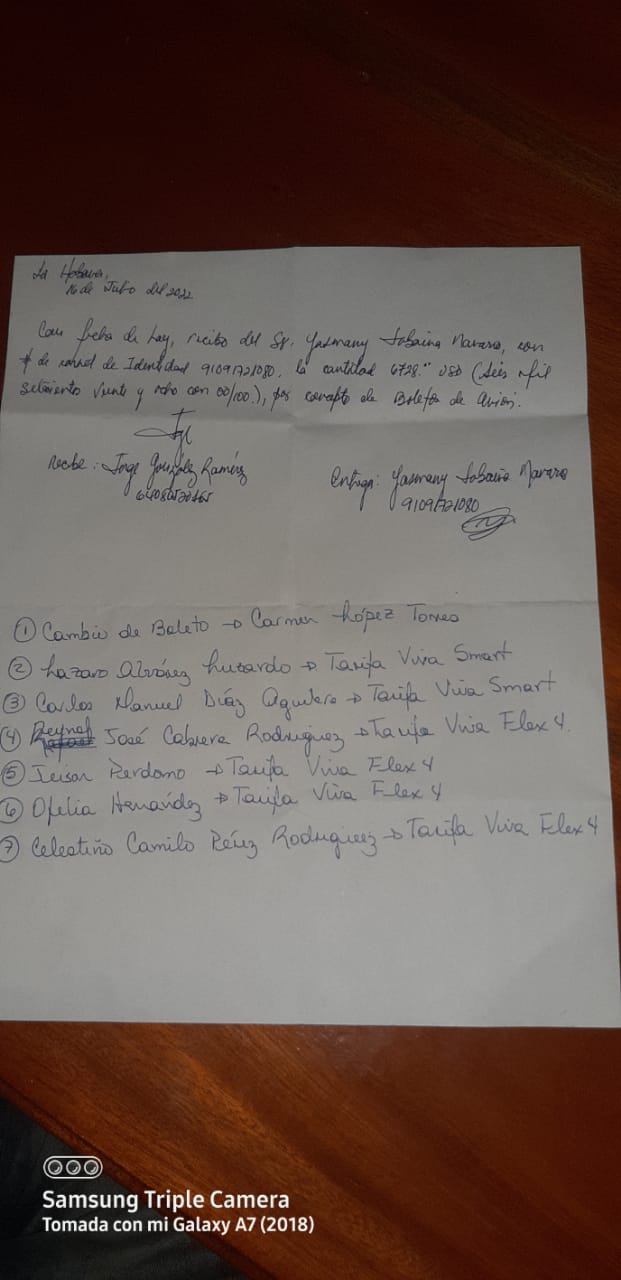 La Habana,
16 de Julio del 2022
Con fecha de hoy, recibo del Sr. Yasmany Sobaina Navarro, con
# de carnet de Identidad 91091721080, la cantidad 6728.°° USD (Seis mil
setesiento Veinte y ocho con 00/100), por concepto de Boletos de avion.
Recibe: Jorge González Ramírez
Entrega: Yasmany Sobaina Navarro
91091721080
① Cambio de Boleto → Carmen López Torres
② Lazaro Alvárez Luzardo → Tarifa Viva Smart
③ Carlos Manuel Díaz Aguilera → Tarifa Viva Smart
④ Reynel José Cabrera Rodriguez → Tarifa Viva Flex 4.
⑤ Jeison Perdomo → Tarifa Viva Flex 4
⑥ Ofelia Hernández → Tarifa Viva Flex 4
⑦ Celestino Camilo Pérez Rodriguez → Tarifa Viva Flex 4
Samsung Triple Camera
Tomada con mi Galaxy A7 (2018)